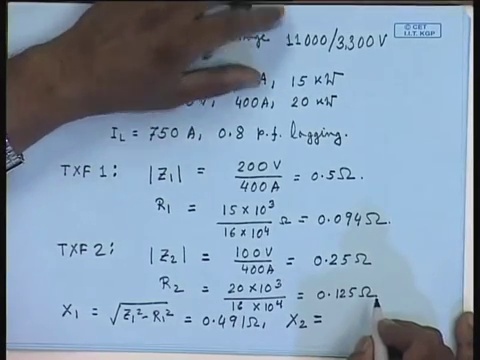 11000/3,300V
© CET
I.I.T. KGP
A, 15 KW
V, 400A, 20 KW
I_L = 750 A, 0.8 p.f. lagging.
TXF 1: |Z₁| = 200 V / 400A = 0.5Ω.
R₁ = 15 × 10³ / 16 × 10⁴ Ω = 0.094Ω.
TXF 2: |Z₂| = 100V / 400A = 0.25Ω
R₂ = 20 × 10³ / 16 × 10⁴ = 0.125Ω
X₁ = √(Z₁² - R₁²) = 0.491Ω, X₂ =